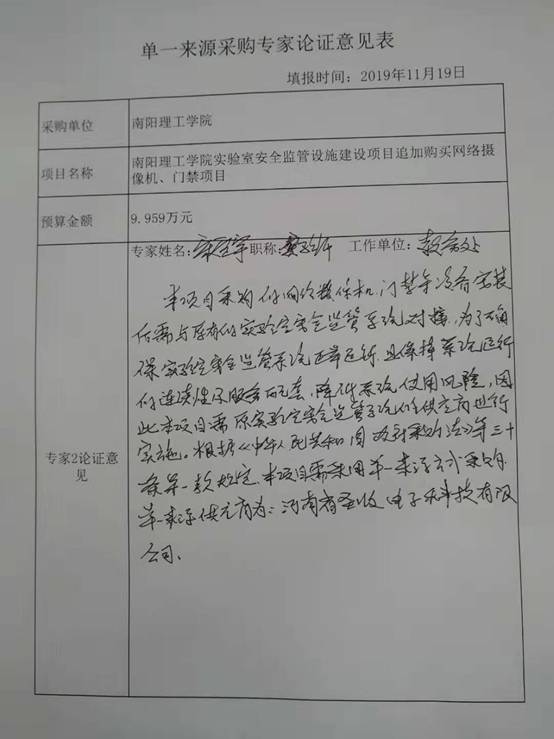 单一来源采购专家论证意见表
填报时间：2019年11月19日
采购单位
南阳理工学院
项目名称
南阳理工学院实验室安全监管设施建设项目追加购买网络摄
像机、门禁项目
预算金额
9.959万元
专家2论证意
见
专家姓名： 职称： 工作单位：
本项目采购的网络摄像机、门禁等设备安装
后需与原有的实验室安全监管系统对接，为了确
保实验室安全监管系统正常运行，且保持系统运行
的连续性及服务配套，降低系统使用风险，因
此本项目需原实验室安全监管系统的供应商进行
实施。根据《中华人民共和国政府采购法》第三十
条第一款规定，本项目需采用单一来源方式采购，
单一来源供应商为：河南省圣 电子科技有限
公司。